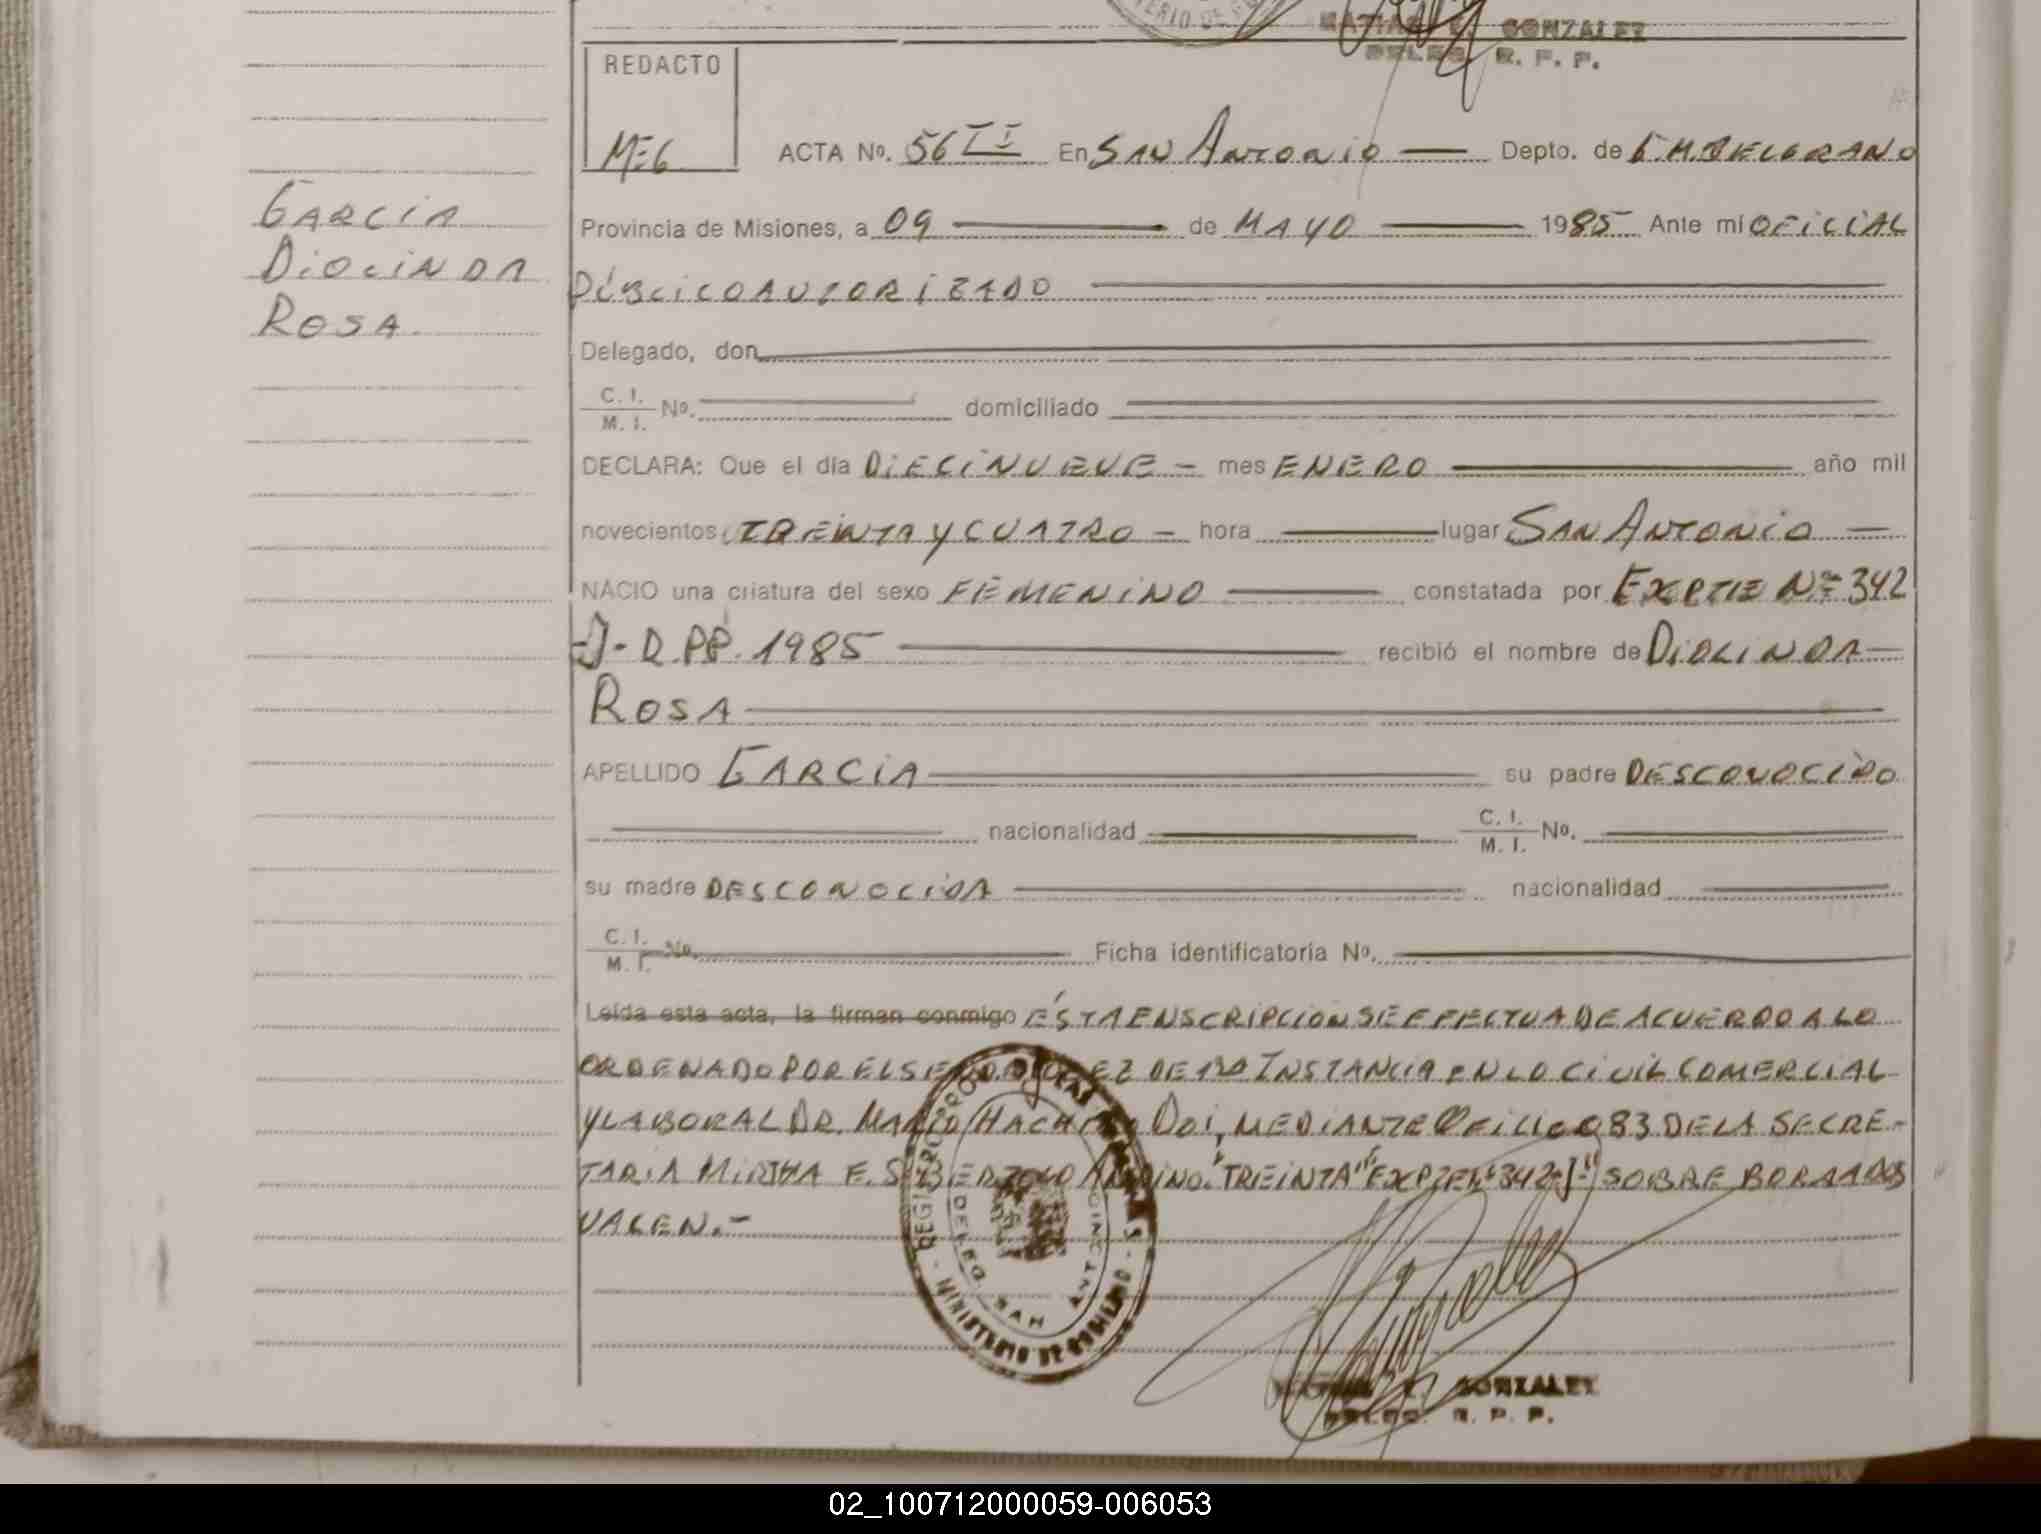 GONZALEZ
DELEG. R. P. P.
REDACTO
M=G
ACTA No. 56 TI En SAN ANTONIO Depto. de G M. BELGRANO
GARCIA
Provincia de Misiones, a 09 de MAYO 1985 Ante mi OFICIAL
DIOLINDA
PÚBLICO AUTORIZADO
ROSA
Delegado, don
C. I. / M. I. No. domiciliado
DECLARA: Que el día DIECINUEVE - mes ENERO año mil
novecientos TREINTA Y CUATRO - hora lugar SAN ANTONIO
NACIO una criatura del sexo FEMENINO constatada por EXPTE Nº 342
-J- D.PP. 1985 recibió el nombre de DIOLINDA
ROSA
APELLIDO GARCIA su padre DESCONOCIDO
nacionalidad C. I. / M. I. No.
su madre DESCONOCIDA nacionalidad
C. I. / M. I. No. Ficha identificatoria No.
Leída esta acta, la firman conmigo ÉSTA ENSCRIPCION SE EFECTUA DE ACUERDO A LO
ORDENADO POR EL SEÑOR JUEZ DE 1RA INSTANCIA EN LO CIVIL COMERCIAL
Y LABORAL DR. MARIO DOI, MEDIANTE OFICIO 083 DE LA SECRE-
TARIA MIRTHA E. S. DE ANDINO. "TREINTA" "EXPTE Nº 342-J-" SOBRE BORRADOS
VALEN.-
REGISTRO PROV. DE LAS PERSONAS - MINISTERIO DE GOBIERNO -
DELEG. SAN ANTONIO
GONZALEZ
DELEG. R. P. P.
02_100712000059-006053